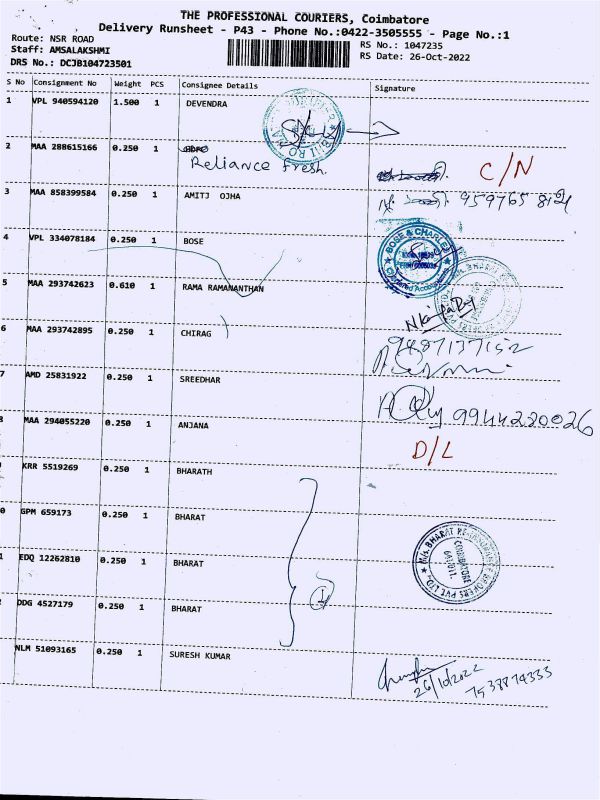 THE PROFESSIONAL COURIERS, Coimbatore
Delivery Runsheet - P43 - Phone No.:0422-3505555 - Page No.:1
Route: NSR ROAD
RS No.: 1047235
Staff: AMSALAKSHMI
RS Date: 26-Oct-2022
DRS No.: DCJB104723501
S No Consignment No Weight PCS Consignee Details Signature
1 VPL 940594120 1.500 1 DEVENDRA
2 MAA 288615166 0.250 1
Reliance fresh. C/N
3 MAA 858399584 0.250 1 AMITJ OJHA
4 VPL 334078184 0.250 1 BOSE
BOSE & CHARLES
5 MAA 293742623 0.610 1 RAMA RAMANANTHAN
6 MAA 293742895 0.250 1 CHIRAG
9487137152
7 AMD 25831922 0.250 1 SREEDHAR
9944220026
MAA 294055220 0.250 1 ANJANA D/L
KRR 5519269 0.250 1 BHARATH
GPM 659173 0.250 1 BHARAT
EDQ 12262810 0.250 1 BHARAT
DDG 4527179 0.250 1 BHARAT
M/s. BHARAT RE-INSURANCE BROKERS PVT LTD
COIMBATORE
NLM 51093165 0.250 1 SURESH KUMAR
26/10/2022
7538874333